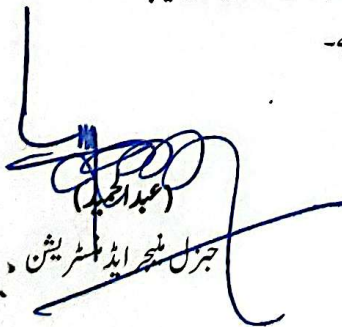 (عبدالحمید)
جنرل منیجر ایڈمنسٹریشن